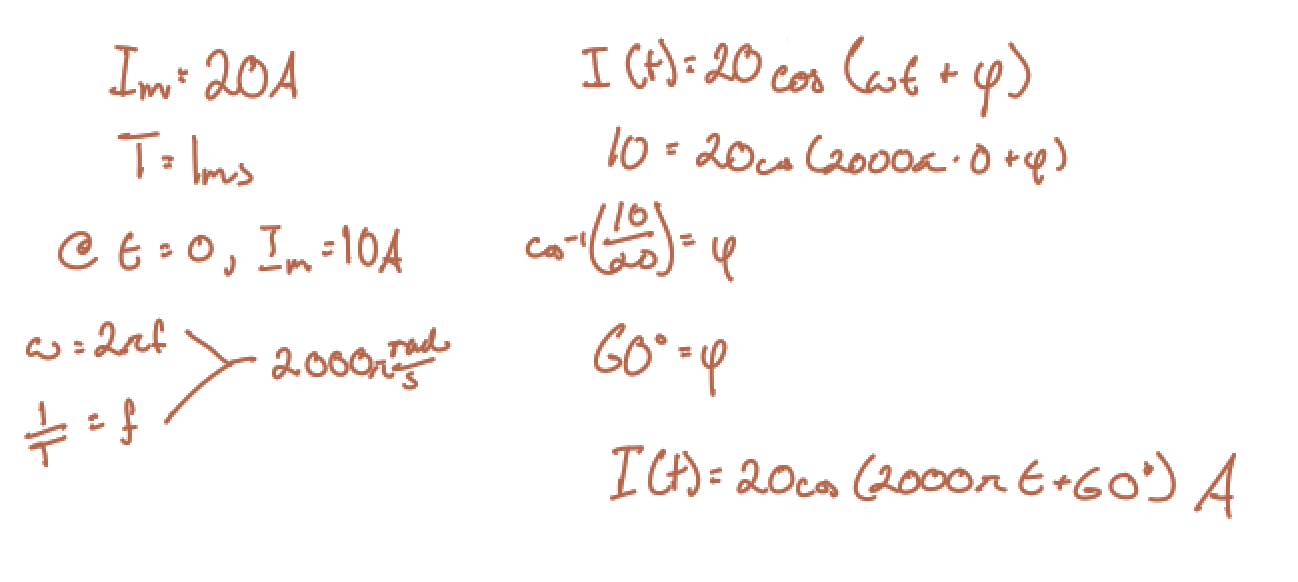 I_m = 20A
T = 1ms
@ t = 0, I_m = 10A
ω = 2πf
1/T = f
2000π rad/s
I(t) = 20 cos (ωt + φ)
10 = 20cos (2000π · 0 + φ)
cos⁻¹(10/20) = φ
60° = φ
I(t) = 20cos (2000π t + 60°) A